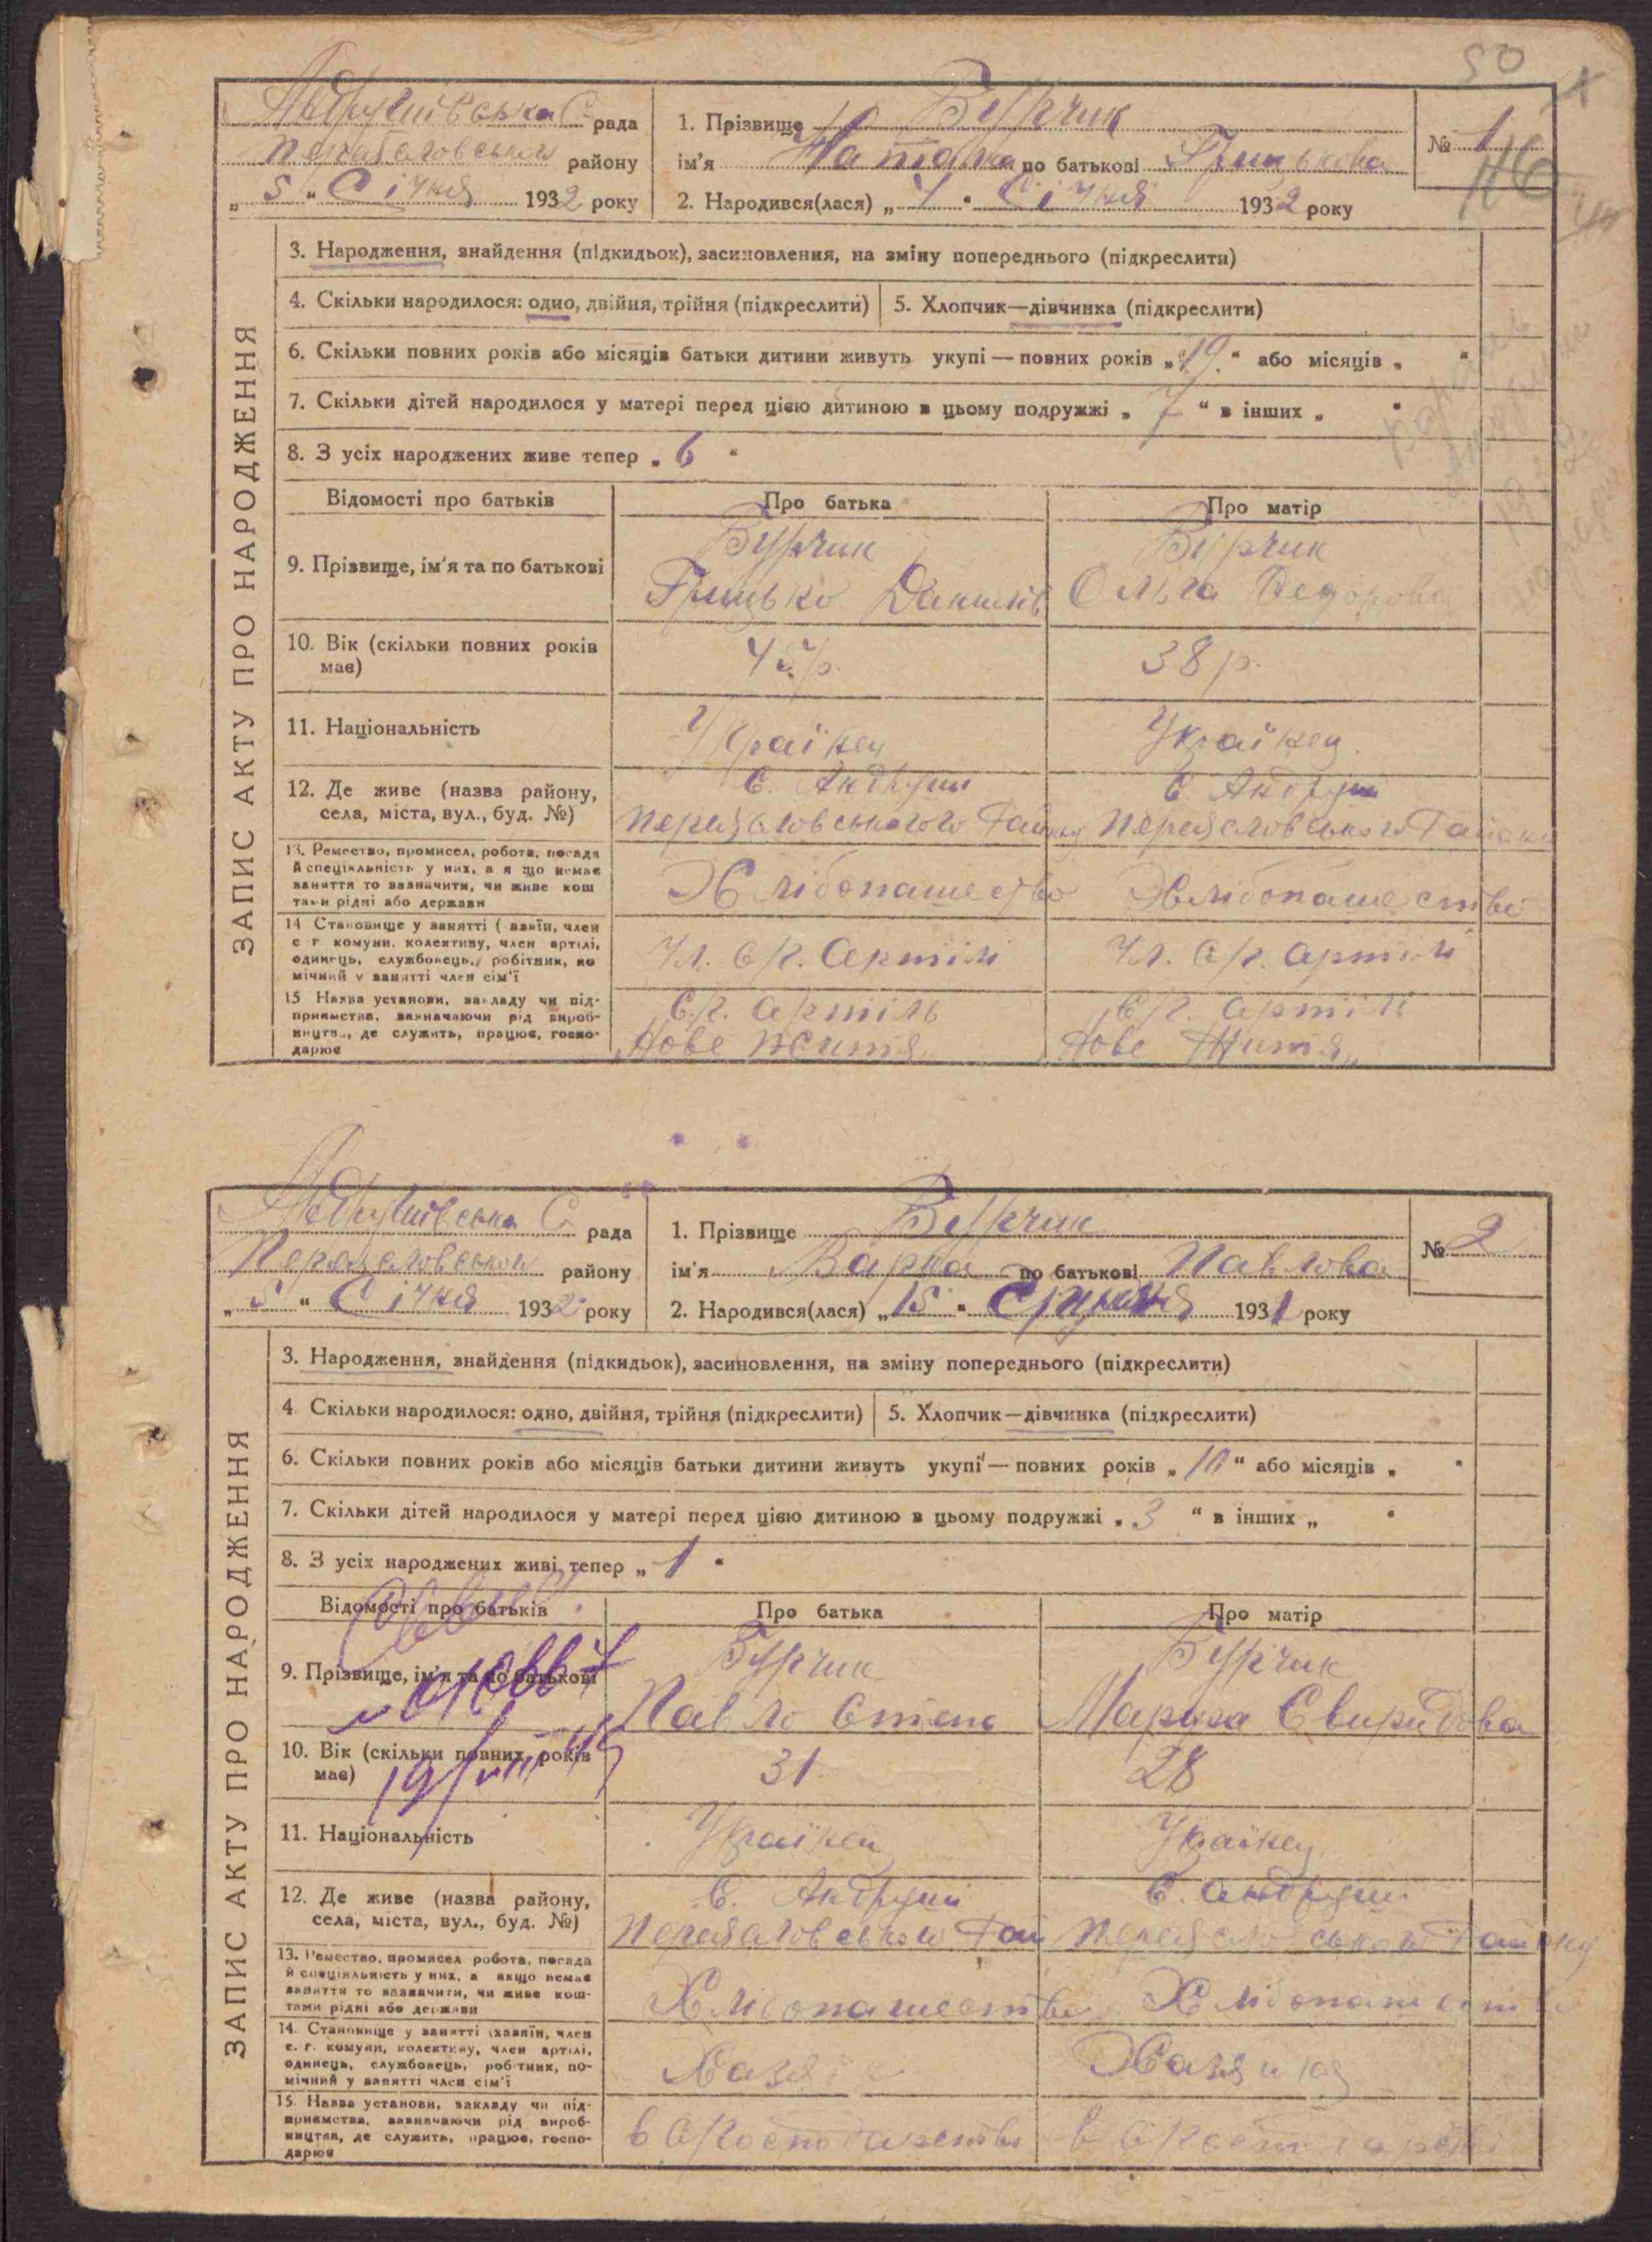 50
Андрушівська С. рада
Переяславського району
„ 5 “ Січня 1932 року
1. Прізвище Бурчик
ім'я Наталка по батькові Грицькова
2. Народився(лася) „ 1 “ Січня 1932 року
№ 1
46
ЗАПИС АКТУ ПРО НАРОДЖЕННЯ
3. Народження, знайдення (підкидьок), засиновлення, на зміну попереднього (підкреслити)
4. Скільки народилося: одно, двійня, трійня (підкреслити) 5. Хлопчик—дівчинка (підкреслити)
6. Скільки повних років або місяців батьки дитини живуть укупі — повних років „ 19 “ або місяців „ “
7. Скільки дітей народилося у матері перед цією дитиною в цьому подружжі „ 7 “ в інших „ “
8. З усіх народжених живе тепер „ 6 “
Відомості про батьків Про батька Про матір
9. Прізвище, ім'я та по батькові
Бурчик Бурчик
Грицько Данилів Ольга Федорова
10. Вік (скільки повних років має)
45 р. 38 р.
11. Національність
Українец Українец
12. Де живе (назва району, села, міста, вул., буд. №)
С. Андруши С. Андруши
Переяславського Району Переяславського Району
13. Ремество, промисел, робота, посада
й спеціяльність у них, а я що немає
заняття то зазначити, чи живе кош
тами рідні або держави
Хлібопашество Хлібопашество
14 Становище у занятті ( азяїн, член
с г комуни, колективу, член артілі,
одинець, службовець, робітник, по
мічний у занятті член сім'ї
Чл. с/г. Артілі Чл. с/г. артілі
15 Назва установи, закладу чи під-
приємства, зазначаючи рід вироб-
ництва, де служить, працює, госпо-
дарює
С.г. артіль С/г. артіль
Нове Життя Нове Життя
Андрушівська С. рада
Переяславської району
„ 5 “ Січня 1932 року
1. Прізвище Бурчик
ім'я Варка по батькові Павлова
2. Народився(лася) „ 15 “ Грудня 1931 року
№ 2
ЗАПИС АКТУ ПРО НАРОДЖЕННЯ
3. Народження, знайдення (підкидьок), засиновлення, на зміну попереднього (підкреслити)
4. Скільки народилося: одно, двійня, трійня (підкреслити) 5. Хлопчик—дівчинка (підкреслити)
6. Скільки повних років або місяців батьки дитини живуть укупі — повних років „ 10 “ або місяців „ “
7. Скільки дітей народилося у матері перед цією дитиною в цьому подружжі „ 3 “ в інших „ “
8. З усіх народжених живі тепер „ 1 “
Відомості про батьків Про батька Про матір
9. Прізвище, ім'я та по батькові
Бурчик Бурчик
Павло Степа Маруся Свиридова
10. Вік (скільки повних років має)
31 28
19/VIII 45
11. Національність
Українец Українец
12. Де живе (назва району, села, міста, вул., буд. №)
С. Андруши С. Андруши
Переяславського Рай Переяславського Району
13. Ремество, промисел робота, посада
й спеціяльність у них, а якщо немає
заняття то зазначити, чи живе кош-
тами рідні або держави
Хлібопашество Хлібопашество
14. Становище у занятті (хазяїн, член
с. г. комуни, колективу, член артілі,
одинець, службовець, робітник, по-
мічний у занятті член сім'ї
Хазяїн Хазяйка
15. Назва установи, закладу чи під-
приємства, зазначаючи рід вироб-
ництва, де служить, працює, госпо-
дарює
в с/господарстві в с/господарстві